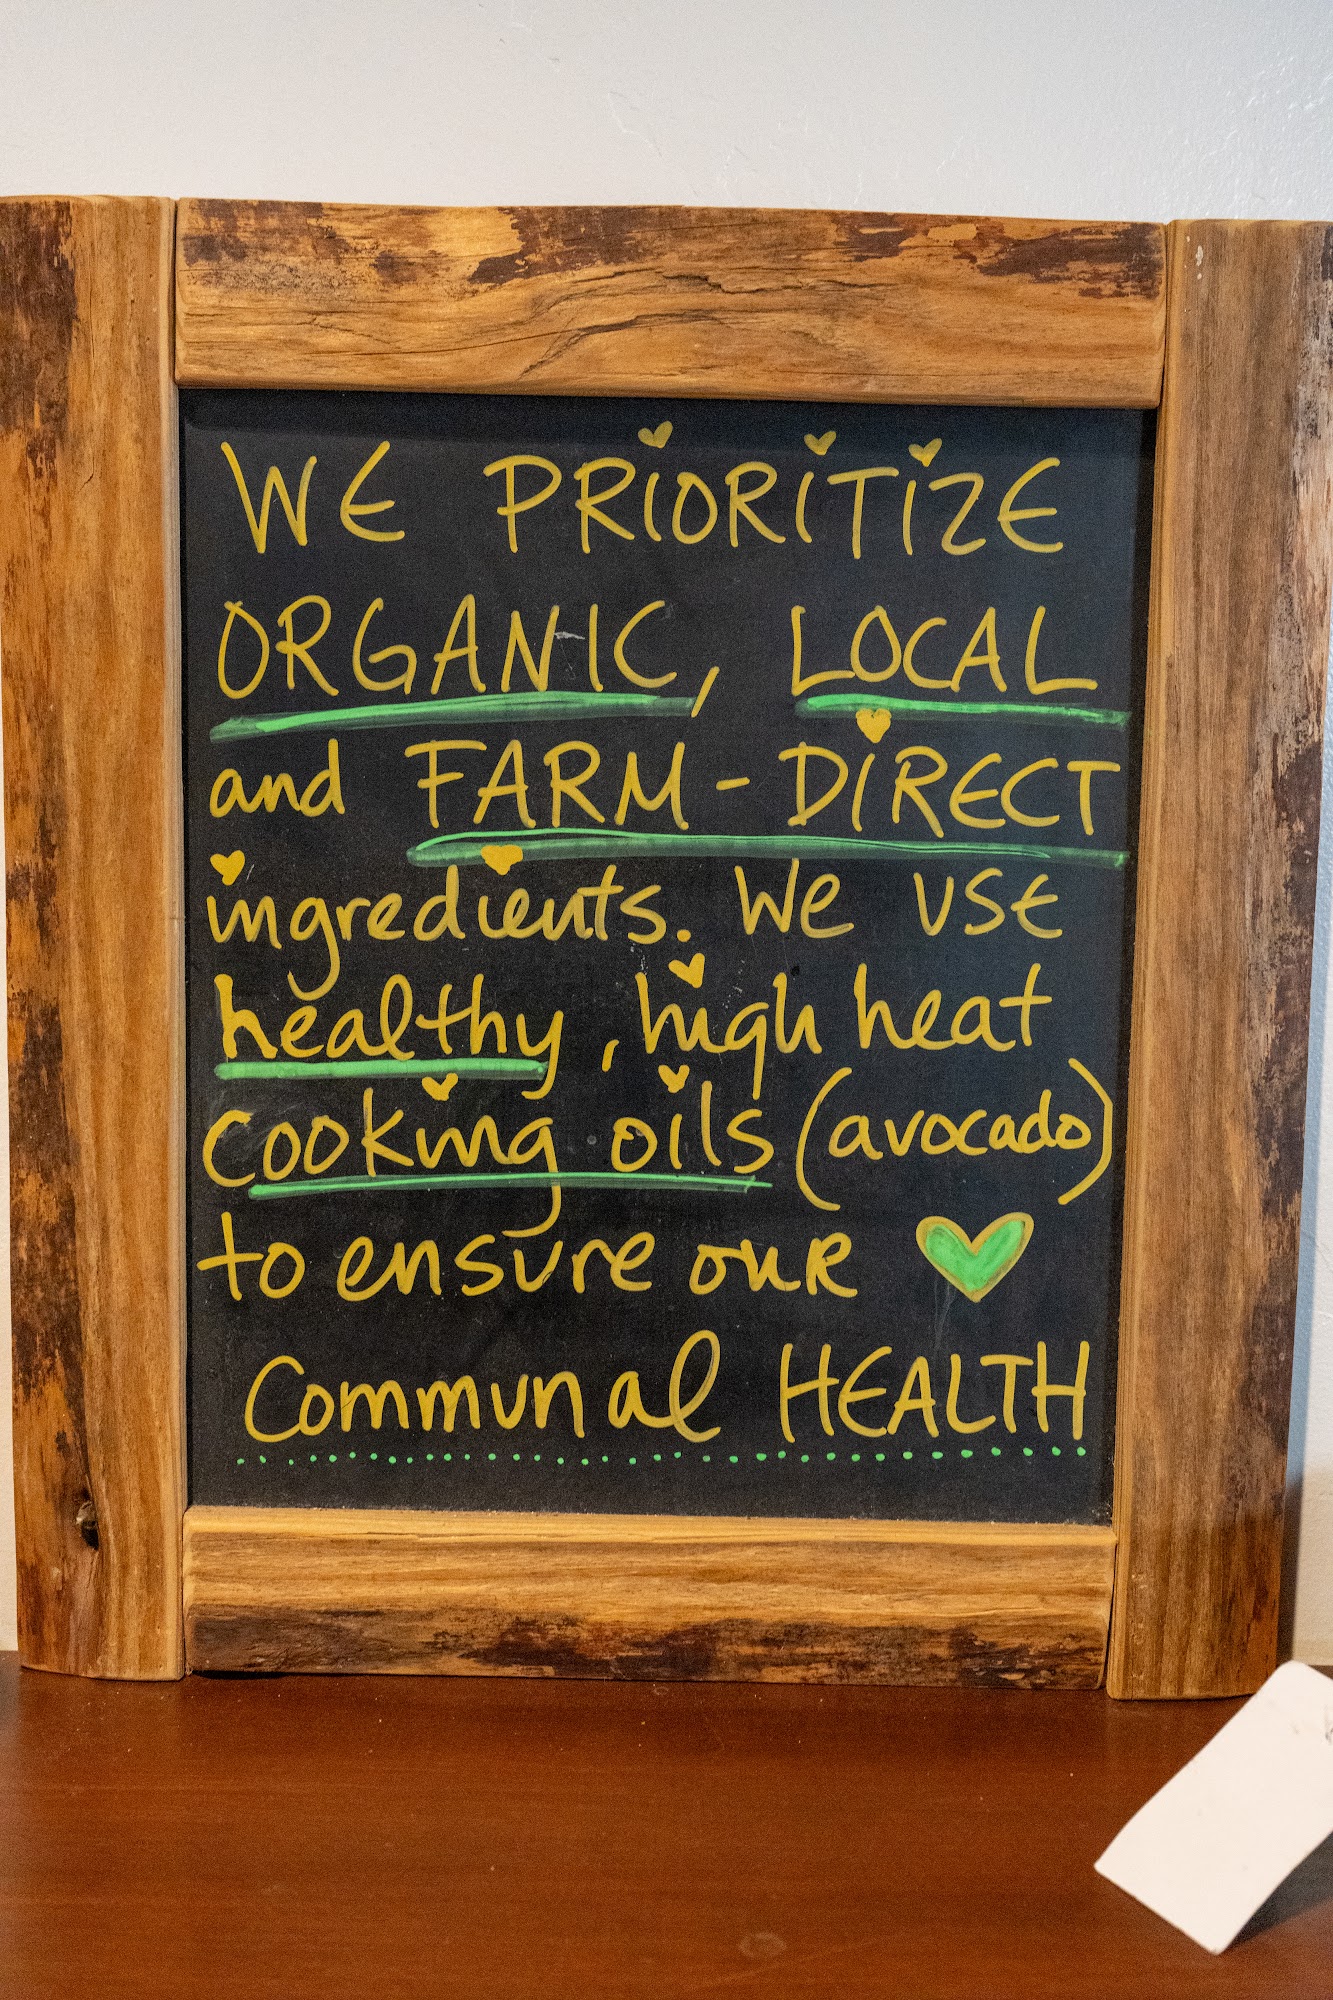 WE PRIORITIZE
ORGANIC, LOCAL
and FARM-DIRECT
ingredients. We USE
healthy, high heat
cooking oils (avocado)
to ensure our
Communal HEALTH